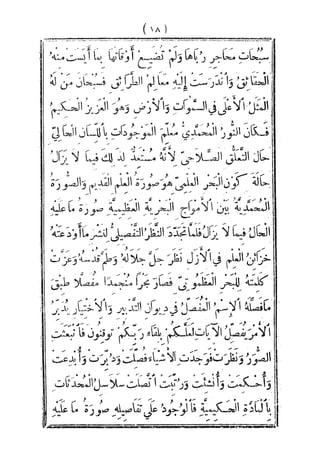 (١٨)
سبحات محاجر رباها ولم تضيع أوقاتها بما أيست منه
الحقائق وأندرست إليه معالم الطرائق فسبحان من له
المثل الأعلى في السموات والأرض وهو العزيز الحكيم
فكان النور المحمدي معلم الموجودات بالسان الحالي
حال التعلق الصلاحي لأنه مستعد لذلك فيما لا يزال
حالة كون البحر العلمي هو صورة العلم القديم والصورة
المحمدية بين الأمواج البحرية العظيمة صورة ما عليه
الحال فيما لا يزال فلما تجدد النظر التفصيلي لنشر ما أودعته
خزائن العلم في الأزل نظر جل جلاله وعظم قدسه وعزت
كلمته للبحر العظموتي فصار بحرا منجمدا مفصلا طبق
ما فصله الإسم المفصل في ديوان التدبير والأختيار يدبر
الأمر يفصل الآيات لعلكم بلقاء ربكم توقنون فأنبعثت
الصور ونظرت فوجدت الأشياء فصلت ودبرت وأبدعت
وأحكمت وأنشئت ورتبت أتصلت سلاسل المحدثات
بالمادة الحكيمية فالوجود على تفاصيله صورة ما عليه